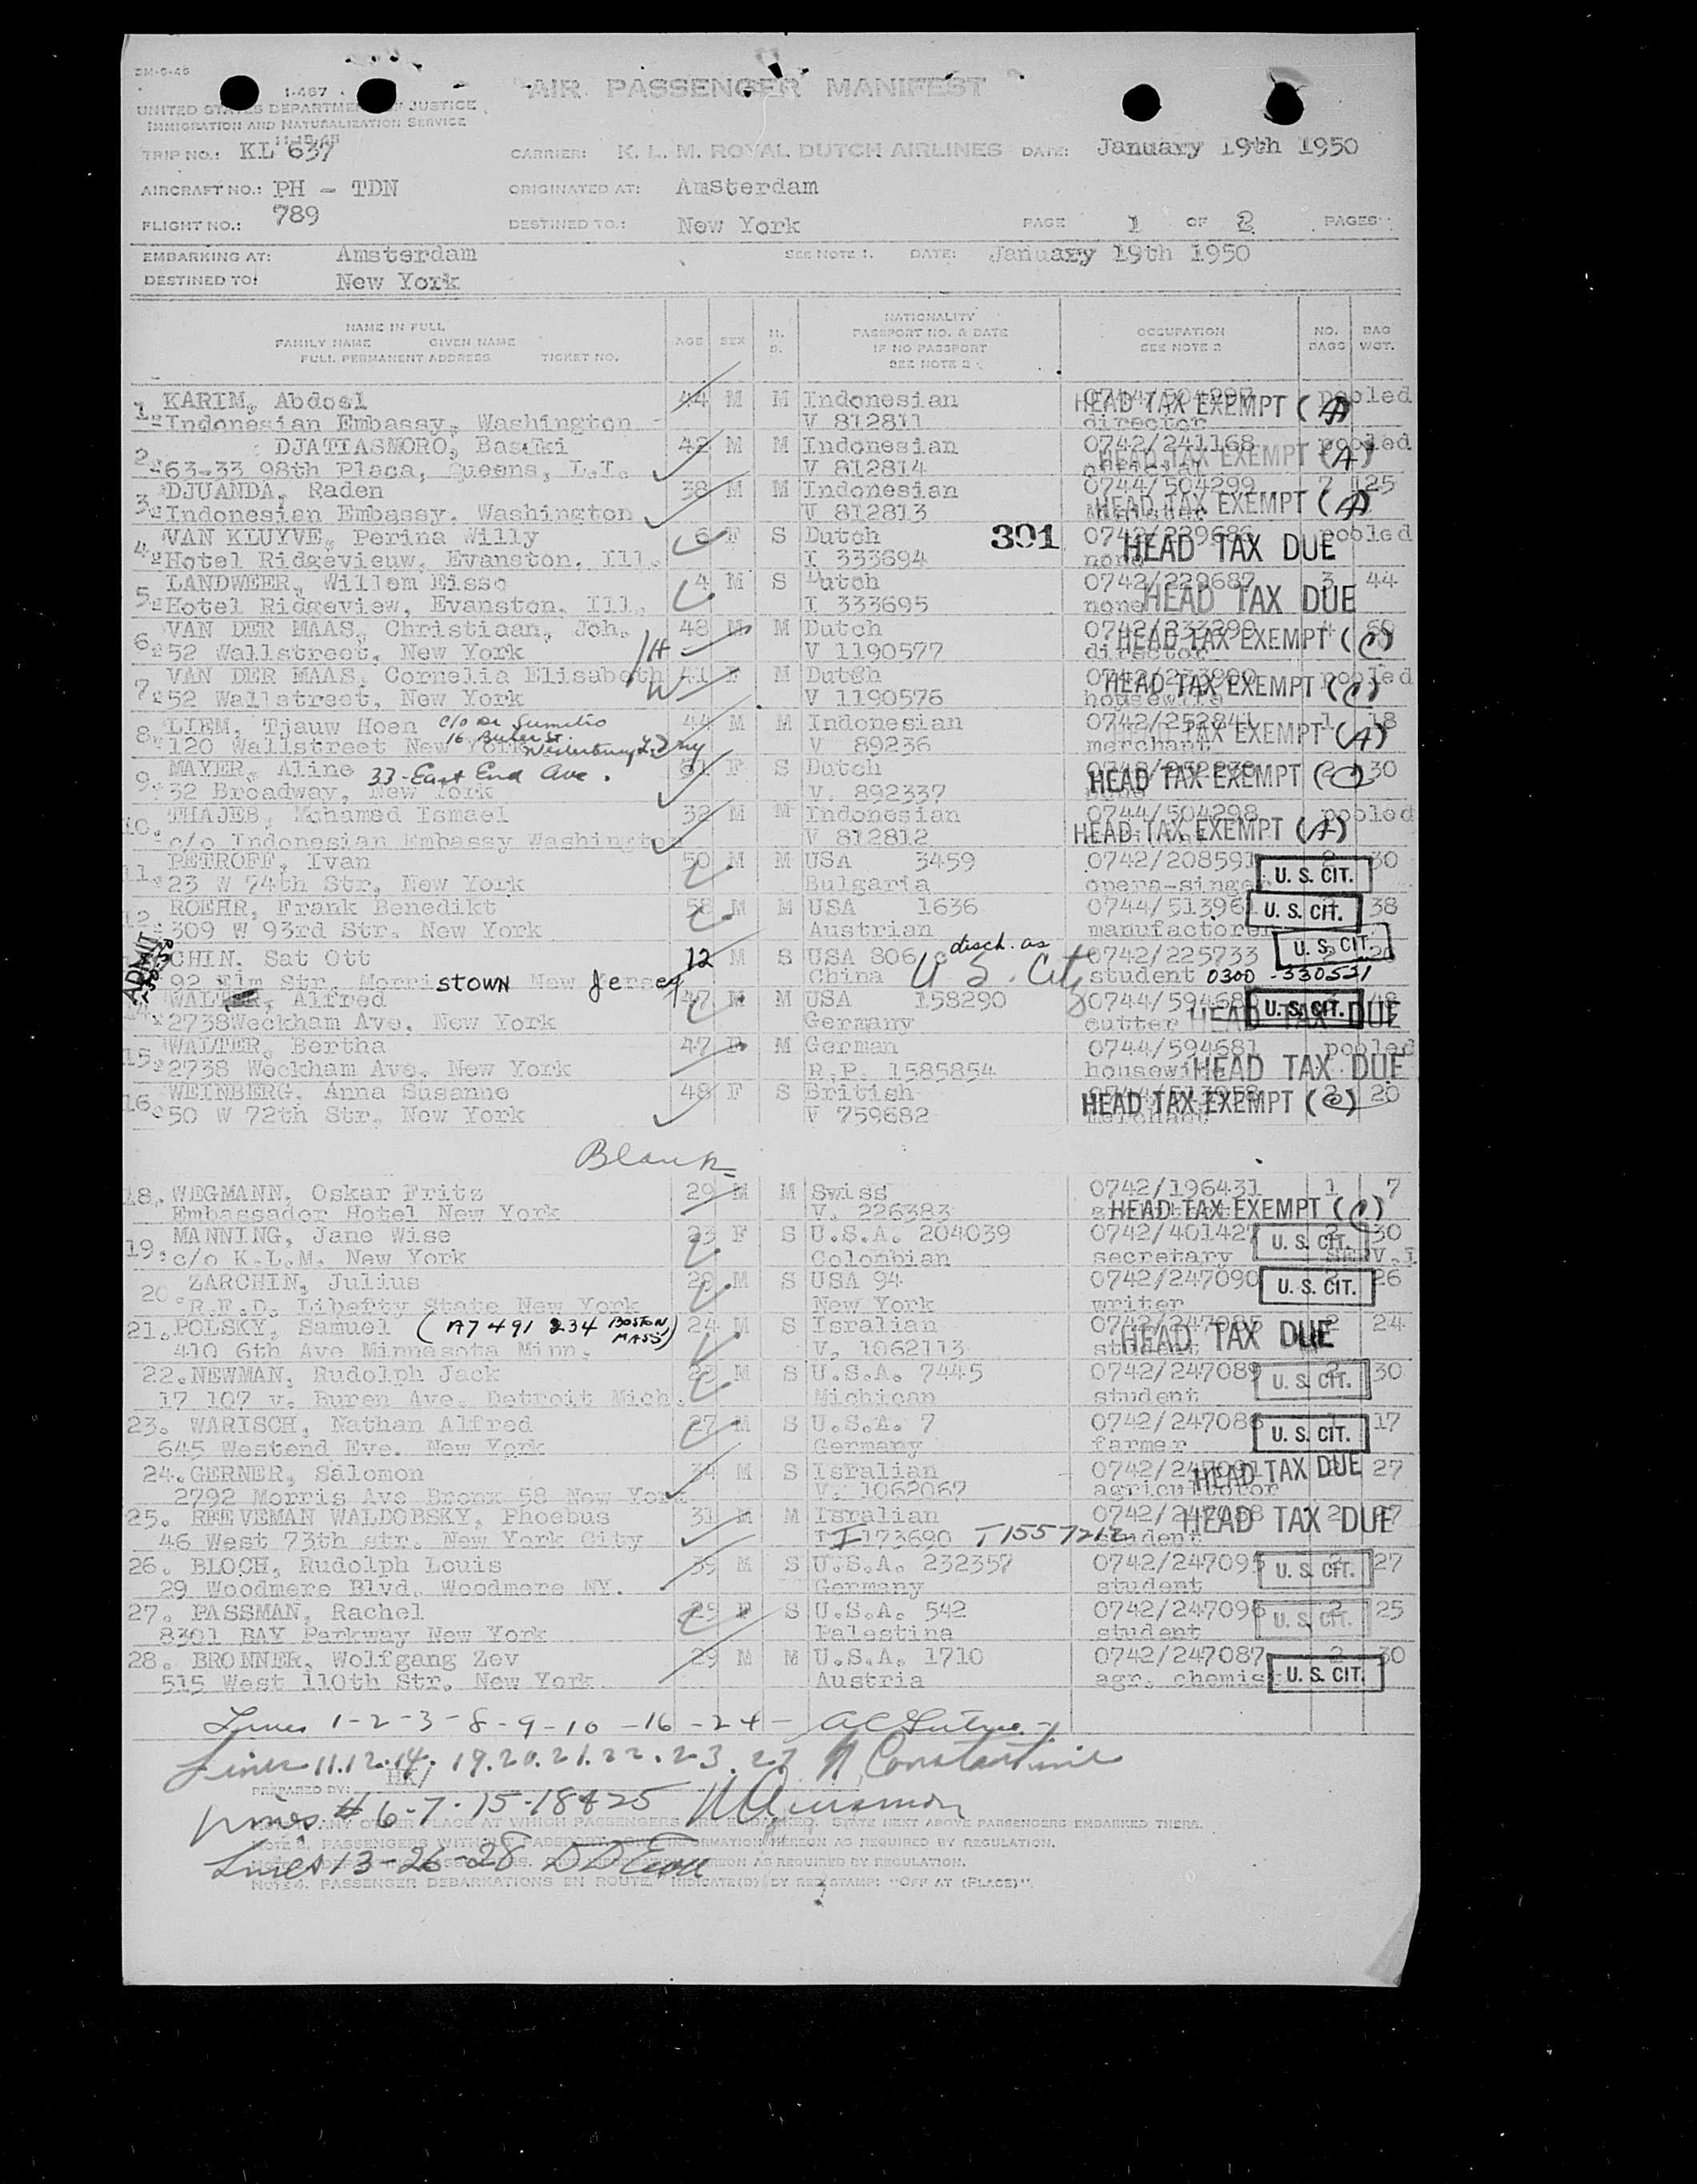 1-487
UNITED STATES DEPARTMENT OF JUSTICE
IMMIGRATION AND NATURALIZATION SERVICE
AIR PASSENGER MANIFEST
TRIP NO.: KL 637 CARRIER: K. L. M. ROYAL DUTCH AIRLINES DATE: January 19th 1950
AIRCRAFT NO.: PH - TDN ORIGINATED AT: Amsterdam
FLIGHT NO.: 789 DESTINED TO: New York PAGE 1 OF 2 PAGES
EMBARKING AT: Amsterdam SEE NOTE 1. DATE: January 19th 1950
DESTINED TO: New York
NAME IN FULL
FAMILY NAME GIVEN NAME
FULL PERMANENT ADDRESS TICKET NO.
AGE SEX M. S.
NATIONALITY
PASSPORT NO. & DATE
IF NO PASSPORT
SEE NOTE 2
OCCUPATION
SEE NOTE 2
NO. BAGS
BAG WGT.
1. KARIM, Abdoel 44 M M Indonesian pooled
Indonesian Embassy, Washington V 812811 director HEAD TAX EXEMPT (A)
2. DJATIASMORO, Basuki 42 M M Indonesian 0742/241168 pooled
63-33 98th Placa, Queens, L.I. V 812814 HEAD TAX EXEMPT (A)
3. DJUANDA, Raden 38 M M Indonesian 0744/504299 7 125
Indonesian Embassy, Washington V 812813 HEAD TAX EXEMPT (A)
4. VAN KLUYVE, Perina Willy 6 F S Dutch 301 0742/229686 pooled
Hotel Ridgevieuw, Evanston, Ill. I 333694 none HEAD TAX DUE
5. LANDWEER, Willem Eisse 4 M S Dutch 0742/229687 3 44
Hotel Ridgeview, Evanston, Ill. I 333695 none HEAD TAX DUE
6. VAN DER MAAS, Christiaan, Joh. 48 M M Dutch
52 Wallstreet, New York V 1190577 director HEAD TAX EXEMPT (C)
7. VAN DER MAAS, Cornelia Elisabeth 41 F M Dutch pooled
52 Wallstreet, New York V 1190576 housewife HEAD TAX EXEMPT (C)
8. LIEM, Tjauw Hoen 44 M M Indonesian 0742/252841 1 18
120 Wallstreet New York V 89236 merchant TAX EXEMPT (A)
9. MAYER, Aline 33-East End Ave. F S Dutch 2 30
32 Broadway, New York V. 892337 HEAD TAX EXEMPT (C)
10. THAJEB, Mohamed Ismael 32 M M Indonesian 0744/504298 pooled
c/o Indonesian Embassy Washington V 812812 HEAD TAX EXEMPT (A)
11. PETROFF, Ivan 50 M M USA 3459 0742/208591 30
23 W 74th Str, New York Bulgaria opera-singer U. S. CIT.
12. ROEHR, Frank Benedikt 58 M M USA 1636 0744/51396 38
309 W 93rd Str. New York Austrian manufacturer U. S. CIT.
ADMIT
CHIN. Sat Ott 12 M S USA 806 disch. as 0742/225733 U. S. CIT. 20
92 Elm Str. Morristown New Jersey China U S. Cit student 0300 - 330531
WALTER, Alfred 47 M M USA 158290 U. S. CIT.
2738 Weckham Ave. New York Germany cutter HEAD TAX DUE
15. WALTER, Bertha 47 F M German 0744/594681 pooled
2738 Weckham Ave. New York R.P. 1585854 housewife HEAD TAX DUE
16. WEINBERG, Anna Susanne 48 F S British 2 20
50 W 72th Str. New York V 759682 merchant HEAD TAX EXEMPT (C)
Blank
18. WEGMANN, Oskar Fritz 29 M M Swiss 0742/196431 1 7
Embassador Hotel New York V. 226383 HEAD TAX EXEMPT (C)
19. MANNING, Jane Wise 23 F S U.S.A. 204039 0742/401427 2 30
c/o K.L.M. New York Colombian secretary U. S. CIT.
20. ZARCHIN, Julius 29 M S USA 94 0742/247090 26
R.F.D. Liberty State New York New York writer U. S. CIT.
21. POLSKY, Samuel (A7 491 234 BOSTON MASS) 24 M S Isralian 0742/247085 2 24
410 6th Ave Minnesota Minn. V. 1062113 student HEAD TAX DUE
22. NEWMAN, Rudolph Jack M S U.S.A. 7445 0742/247089 2 30
17 107 v. Buren Ave. Detroit Mich. Michican student U. S. CIT.
23. WARISCH, Nathan Alfred 27 M S U.S.A. 7 0742/247086 17
645 Westend Eve. New York Germany farmer U. S. CIT.
24. GERNER, Salomon 34 M S Isralian 27
2792 Morris Ave Bronx 58 New York V. 1062067 agricultor HEAD TAX DUE
25. REEVEMAN WALDOBSKY, Phoebus 31 M M Isralian
46 West 73th str. New York City I 173690 student HEAD TAX DUE
26. BLOCH, Rudolph Louis 39 M S U.S.A. 232357 0742/247095 27
29 Woodmere Blvd. Woodmere NY. Germany student U. S. CIT.
27. PASSMAN, Rachel 25 F S U.S.A. 542 0742/247096 2 25
8301 BAY Parkway New York Palestina student U. S. CIT.
28. BRONNER, Wolfgang Zev 29 M M U.S.A. 1710 0742/247087 2 30
515 West 110th Str. New York Austria agr. chemist U. S. CIT.
Lines 1-2-3-8-9-10-16-24-
Lines 11.12.14. 19.20.21.22.23.27 N Constantine
PREPARED BY:
Lines # 6-7-15-18&25
ANY OTHER PLACE AT WHICH PASSENGERS ARE EMBARKED. STATE NEXT ABOVE PASSENGERS EMBARKED THERE.
PASSENGERS WITHOUT PASSPORT, INFORMATION HEREON AS REQUIRED BY REGULATION.
Lines 13-26-28
HEREON AS REQUIRED BY REGULATION.
NOTE 4. PASSENGER DEBARKATIONS EN ROUTE, INDICATE(D) BY RED STAMP: "OFF AT (PLACE)".